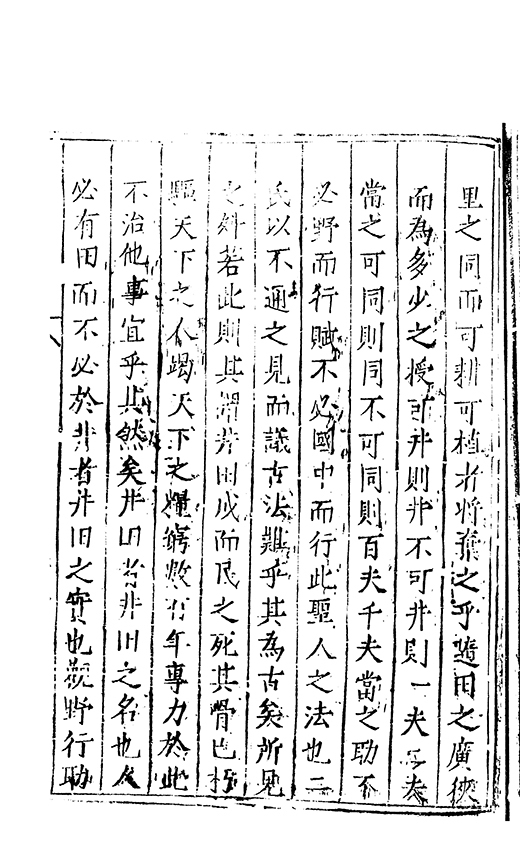 里之同而可耕可植者將奪之乎隨田之廣狹
而為多少之授可井則井不可井則一夫二夫
當之可同則同不可同則百夫千夫當之助不
必野而行賦不必國中而行此聖人之法也二
氏以不通之見而議古法難乎其為古矣所見
之若此則其謂井田成而民之死其骨已朽
驅天下之人竭天下之糧窮數百年專力於此
不治他事宜乎其然矣井田者井田之名也人
必有田而不必於井者井田之實也觀野行助